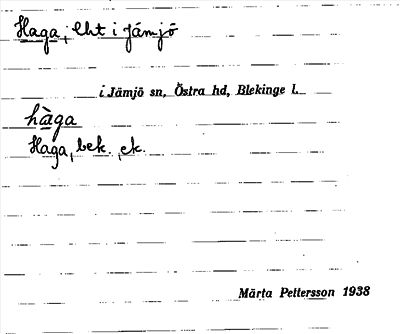 Haga, lht i Jämjö
i Jämjö sn, Östra hd, Blekinge l.
hàga
Haga, bek. ek.
Märta Pettersson 1938